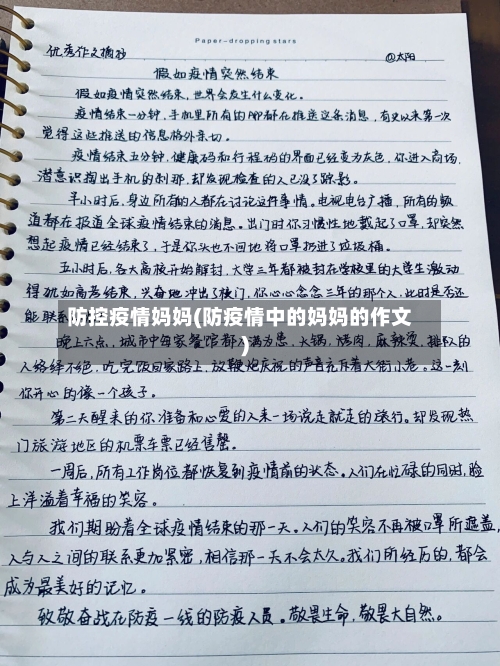 Paper-dropping stars
优秀作文摘抄
@太阳
假如疫情突然结束
假如疫情突然结束,世界会发生什么变化。
疫情结束一分钟,手机里所有的APP都在推送这条消息,有史以来第一次
觉得这些推送的信息格外亲切。
疫情结束五分钟,健康码和行程码的界面已经变为灰色,你进入商场,
潜意识掏出手机的刹那,却发现检查的人已没了踪影。
半小时后,身边所有的人都在讨论这件事情。电视电台广播,所有的频
道都在报道全球疫情结束的消息。出门时你习惯性地戴起了口罩,却突然
想起疫情已经结束了,于是你头也不回地将口罩扔进了垃圾桶。
五小时后,各大高校开始解封,大学三年都被封在学校里的大学生激动
得犹如高考结束,兴奋地冲出了校门,你心心念念三年的那个人,此时是否还
能联系
防控疫情妈妈(防疫情中的妈妈的作文
)
晚上六点,城市中每家餐馆都人满为患,火锅,烤肉,麻辣烫,排队的
人络绎不绝,吃完饭回家路上,放鞭炮庆祝的声音充斥着大街小巷。这一刻
你开心的像一个孩子。
第二天醒来的你准备和心爱的人来一场说走就走的旅行。却发现热
门旅游地区的机票车票已经售罄。
一周后,所有工作岗位都恢复到疫情前的状态。人们在忙碌的同时,脸
上洋溢着幸福的笑容。
我们期盼着全球疫情结束的那一天。人们的笑容不再被口罩所遮盖,
人与人之间的联系更加紧密,相信那一天不会太久。我们所经历的,都会
成为最美好的记忆。
致敬奋战在防疫一线的防疫人员。敬畏生命,敬畏大自然。